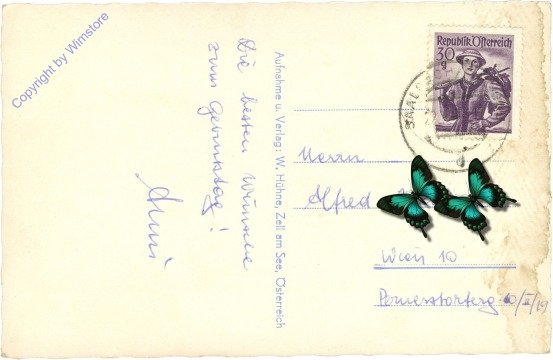 Copyright by Wimstore
Die besten Wünsche
zum Geburtstag!
Anni
Aufnahme u. Verlag: W. Hühne, Zell am See, Österreich
Republik Österreich
30
g
Herrn
Alfred
Wien 10
Pernerstorferg. 10/II/19